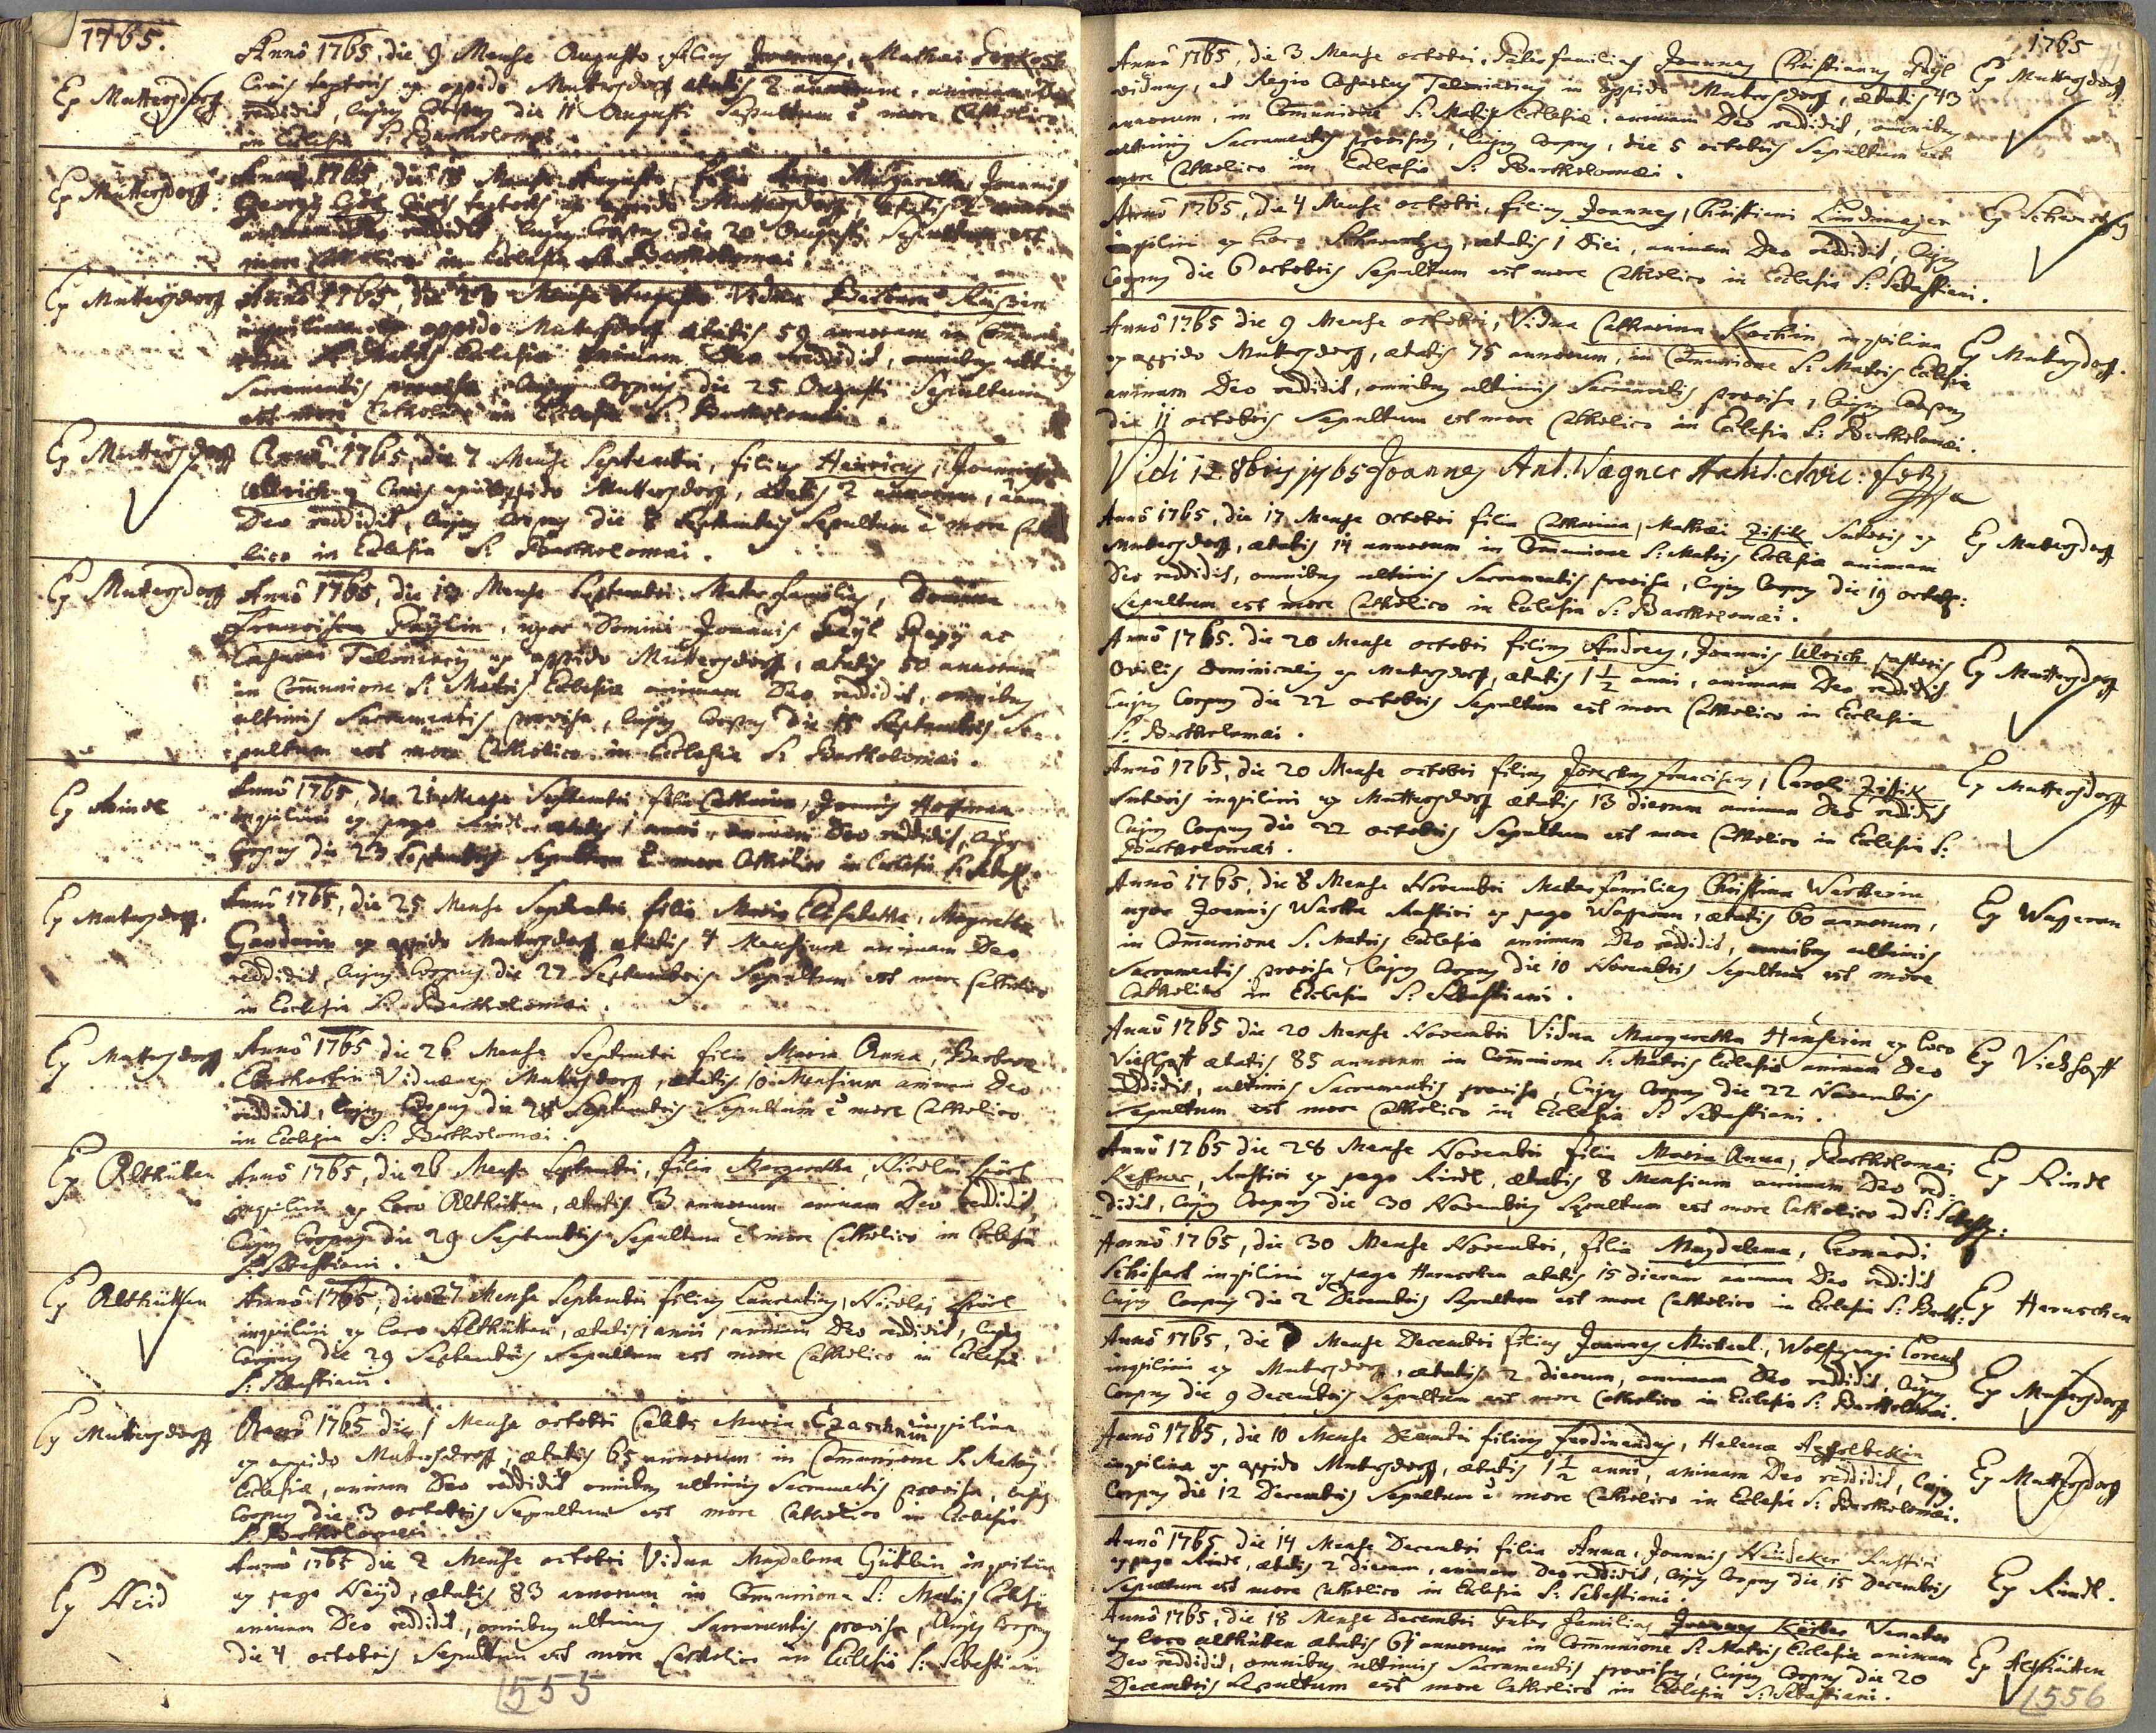 1765.
Ex Muttersdorff
Anno 1765, die 9 Mense Augusto, filius Joannes, Mathaei
Civis textoris ex oppido Muttersdorff aetatis 2 annorum, animam Deo
reddidit, cujus Corpus die 11 Augusti Sepultum e more Catholico
in Ecclesia S: Bartholomaei.
Ex Muttersdorff.
Anno 1765, die 18 Mense Augusto, filia Anna Margaretha, Joannis
Georgij Civis textoris ex oppido Muttersdorff, aetatis 2
animam Deo reddidit, cujus Corpus die 20 Augusti Sepultum est
more Catholico in Ecclesia S: Bartholomaei.
Ex Muttersdorff
Anno 1765, die 23 Mense Augusto Vidua Barbara
inquilina ex oppido Muttersdorff aetatis 59 annorum in Communi-
one S: Matris Ecclesiae animam Deo reddidit, omnibus ultimis
Sacramentis provisa, cujus Corpus die 25 Augusti Sepultum
est more Catholico in Ecclesia S: Bartholomaei.
Ex Muttersdorff
Anno 1765, die 7 Mense Septembri, filius Henricus, Joannis
Civis ex oppido Muttersdorff, aetatis 2 annorum,
Deo reddidit, cujus Corpus die 8 Septembris Sepultum e more Catho-
lico in Ecclesia S: Bartholomaei.
Ex Muttersdorff
Anno 1765, die 13 Mense Septembri Mater familias, Domina
Francisca Paylin, uxor Domini Joannis Payl Regij ac
Teloniarij ex oppido Muttersdorff, aetatis 50 annorum
in Communione S: Matris Ecclesiae animam Deo reddidit, omnibus
ultimis Sacramentis provisa, cujus Corpus die 15 Septembris Se-
pultum est more Catholico in Ecclesia S: Bartholomaei.
Ex Rindl
Anno 1765, die 21 Mense Septembri filia Catharina, Joannis Hofman
inquilini ex pago Rindl aetatis 1 anni, animam Deo reddidit, cujus
Corpus die 23 Septembris Sepultum e more Catholico in Ecclesia S: Sebast:
Ex Muttersdorff.
Anno 1765, die 25 Mense Septembri filia Maria Elisabetha, Margaretha
Ganderin ex oppido Muttersdorff aetatis 4 Mensium animam Deo
reddidit, cujus Corpus die 27 Septembris Sepultum est more Catholico
in Ecclesia S: Bartholomaei.
Ex Muttersdorff
Anno 1765 die 26 Mense Septembri filia Maria Anna, Barbara
Viduae ex Muttersdorff, aetatis 10 Mensium animam Deo
reddidit, cujus Corpus die 28 Septembris Sepultum e more Catholico
in Ecclesia S: Bartholomaei.
Ex Althütten
Anno 1765, die 26 Mense Septembri, filia Margaretha, Nicolai
inquilini ex loco Althütten, aetatis 3 annorum animam Deo reddidit,
Cujus Corpus die 29 Septembris Sepultum e more Catholico in Ecclesia
S: Sebastiani.
Ex Althütten
Anno 1765, die 27 Mense Septembri filius Laurentius, Nicolai
inquilini ex loco Althütten, aetatis 1 anni, animam Deo reddidit, cujus
Corpus die 29 Septembris Sepultum est more Catholico in Ecclesia
S: Sebastiani.
Ex Muttersdorff
Anno 1765 die 1 Mense octobri Caelebs Maria inquilina
ex oppido Muttersdorff, aetatis 65 annorum in Communione S. Matris
Ecclesiae, animam Deo reddidit omnibus ultimis Sacramentis provisa, cujus
Corpus die 3 octobris Sepultum est more Catholico in Ecclesia
S: Bartholomaei
Ex Neid
Anno 1765 die 2 Mense octobri Vidua Magdalena inquilina
ex pago Neyd, aetatis 83 annorum in Communione S: Matris Ecclesiae
animam Deo reddidit, omnibus ultimis Sacramentis provisa, Cujus Corpus
die 4 octobris Sepultum est more Catholico in Ecclesia S: Sebastiani
555
1765
Anno 1765, die 3 Mense octobri, Pater familias Joannes Christianus Payl
viduus, et Regio Caesareus Teloniarius in oppido Muttersdorff, aetatis 43
annorum, in Communione S: Matris Ecclesiae, animam Deo reddidit, omnibus
ultimis Sacramentis provisus, cujus Corpus, die 5 octobris Sepultum est
more Catholico in Ecclesia S: Bartholomaei.
Ex Muttersdorff
Anno 1765, die 4 Mense octobri, filius Joannes, Christiani Lindemajer
inquilini ex loco aetatis 1 diei, animam Deo reddidit, Cujus
Corpus die 6 octobris Sepultum est more Catholico in Ecclesia S: Sebastiani.
Anno 1765 die 9 Mense octobri, Vidua Catharina Kochin, inquilina
ex oppido Muttersdorff, aetatis 75 annorum, in Communione S: Matris Ecclesiae
animam Deo reddidit, omnibus ultimis Sacramentis provisa, cujus Corpus
die 11 octobris Sepultum est more Catholico in Ecclesia S: Bartholomaei.
Ex Muttersdorff.
Vidi 12 8bris 1765 Joannes Ant. Wagner
Anno 1765, die 17 Mense octobri filia Catharina, Mathaei Zistik Sutoris ex
Muttersdorff, aetatis 14 annorum in Communione S: Matris Ecclesiae animam
Deo reddidit, omnibus ultimis Sacramentis provisa, cujus Corpus die 19 octobr:
Sepultum est more Catholico in Ecclesia S: Bartholomaei.
Ex Muttersdorff
Anno 1765. die 20 Mense octobri filius Andreas, Joannis Ulrich pastoris
ovilis Dominicalis ex Muttersdorff, aetatis 1 1/2 anni, animam Deo reddidit
Cujus Corpus die 22 octobris Sepultum est more Catholico in Ecclesia
S: Bartholomaei.
Ex Muttersdorff
Anno 1765, die 20 Mense octobri filius Josephus Franciscus, Caroli Zistik
Sutoris inquilini ex Muttersdorff aetatis 13 dierum animam Deo reddidit
Cujus Corpus die 22 octobris Sepultum est more Catholico in Ecclesia S:
Bartholomaei.
Ex Muttersdorff
Anno 1765, die 8 Mense Novembri Mater familias Christina
uxor Joannis Rustici ex pago Wasseraun, aetatis 60 annorum,
in Communione S. Matris Ecclesiae animam Deo reddidit, omnibus ultimis
Sacramentis provisa, Cujus Corpus die 10 Novembris Sepultum est more
Catholico in Ecclesia S: Sebastiani.
Ex Wasseraun
Anno 1765 die 20 Mense Novembri Vidua Margaretha Hanserin ex loco
Viehhoff aetatis 85 annorum in Communione S: Matris Ecclesiae animam Deo
reddidit, ultimis Sacramentis provisa, Cujus Corpus die 22 Novembris
Sepultum est more Catholico in Ecclesia S: Sebastiani.
Ex Viehhoff
Anno 1765 die 28 Mense Novembri filia Maria Anna, Bartholomaei
Kestner, Rustici ex pago Rindl, aetatis 8 Mensium animam Deo red-
didit, Cujus Corpus die 30 Novembris Sepultum est more Catholico ad S: Sebast:
Ex Rindl
Anno 1765, die 30 Mense Novembri, filia Magdalena, Leonardi
inquilini ex pago aetatis 15 dierum animam Deo reddidit
Cujus Corpus die 2 Decembris Sepultum est more Catholico in Ecclesia S: Barth:
Anno 1765, die 7 Mense Decembri filius Joannes Michael, Wolfgangi Lorentz
inquilini ex Muttersdorff, aetatis 2 dierum, animam Deo reddidit, Cujus
Corpus die 9 Decembris Sepultum est more Catholico in Ecclesia S: Bartholomaei.
Ex Muttersdorff
Anno 1765, die 10 Mense Decembri filius Ferdinandus, Helena
inquilina ex oppido Muttersdorff, aetatis 1 1/2 anni, animam Deo reddidit, Cujus
Corpus die 12 Decembris Sepultum e more Catholico in Ecclesia S: Bartholomaei.
Ex Muttersdorff
Anno 1765, die 14 Mense Decembri filia Anna, Joannis Neudeker Rustici
ex pago Rindl, aetatis 2 dierum, animam Deo reddidit, Cujus Corpus die 15 Decembris
Sepultum est more Catholico in Ecclesia S: Sebastiani.
Ex Rindl.
Anno 1765, die 18 Mense Decembri Pater familias Joannes Venator
ex loco althütten aetatis 61 annorum in Communione S: Matris Ecclesiae animam
Deo reddidit, omnibus ultimis Sacramentis provisus, Cujus Corpus die 20
Decembris Sepultum est more Catholico in Ecclesia S: Sebastiani.
Ex Althütten
556